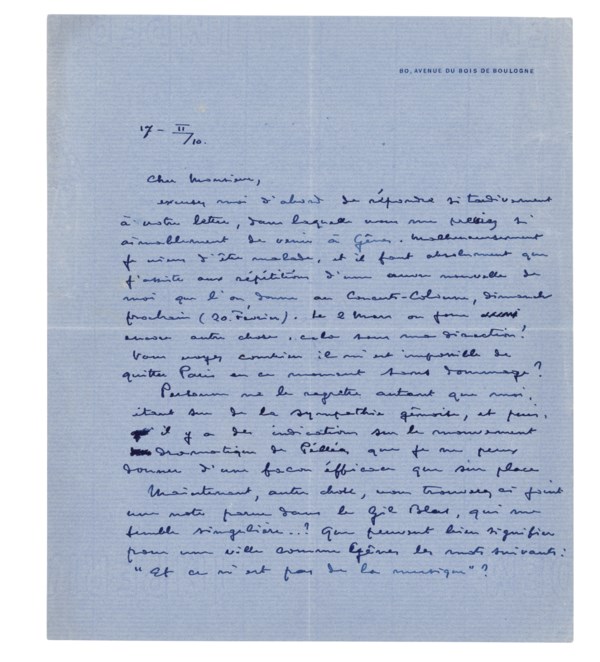 80, AVENUE DU BOIS DE BOULOGNE
17 - II/10.
Cher Monsieur,
excusez moi d'abord de répondre si tardivement
à votre lettre, dans laquelle vous me priez si
aimablement de venir à Gênes. Malheureusement
je viens d'être malade, et il faut absolument que
j'assiste aux répétitions d'une œuvre nouvelle de
moi que l'on donne au Concerts-Colonne, dimanche
prochain (20. Février). Le 2 Mars on joue
encore autre chose, cela sous ma direction!
Vous voyez combien il m'est impossible de
quitter Paris en ce moment sans dommage?
Personne ne le regrette autant que moi,
étant sur de la sympathie gênoise, et puis,
il y a des indications sur le mouvement
dramatique de Pelléas que je ne peux
donner d'une façon éfficace que sur place
Maintenant, autre chose, vous trouverez ci joint
une note parue dans le Gil Blas, qui me
semble singulière..? Que peuvent bien signifier
pour une ville comme Gênes les mots suivants:
"Et ce n'est pas de la musique"?